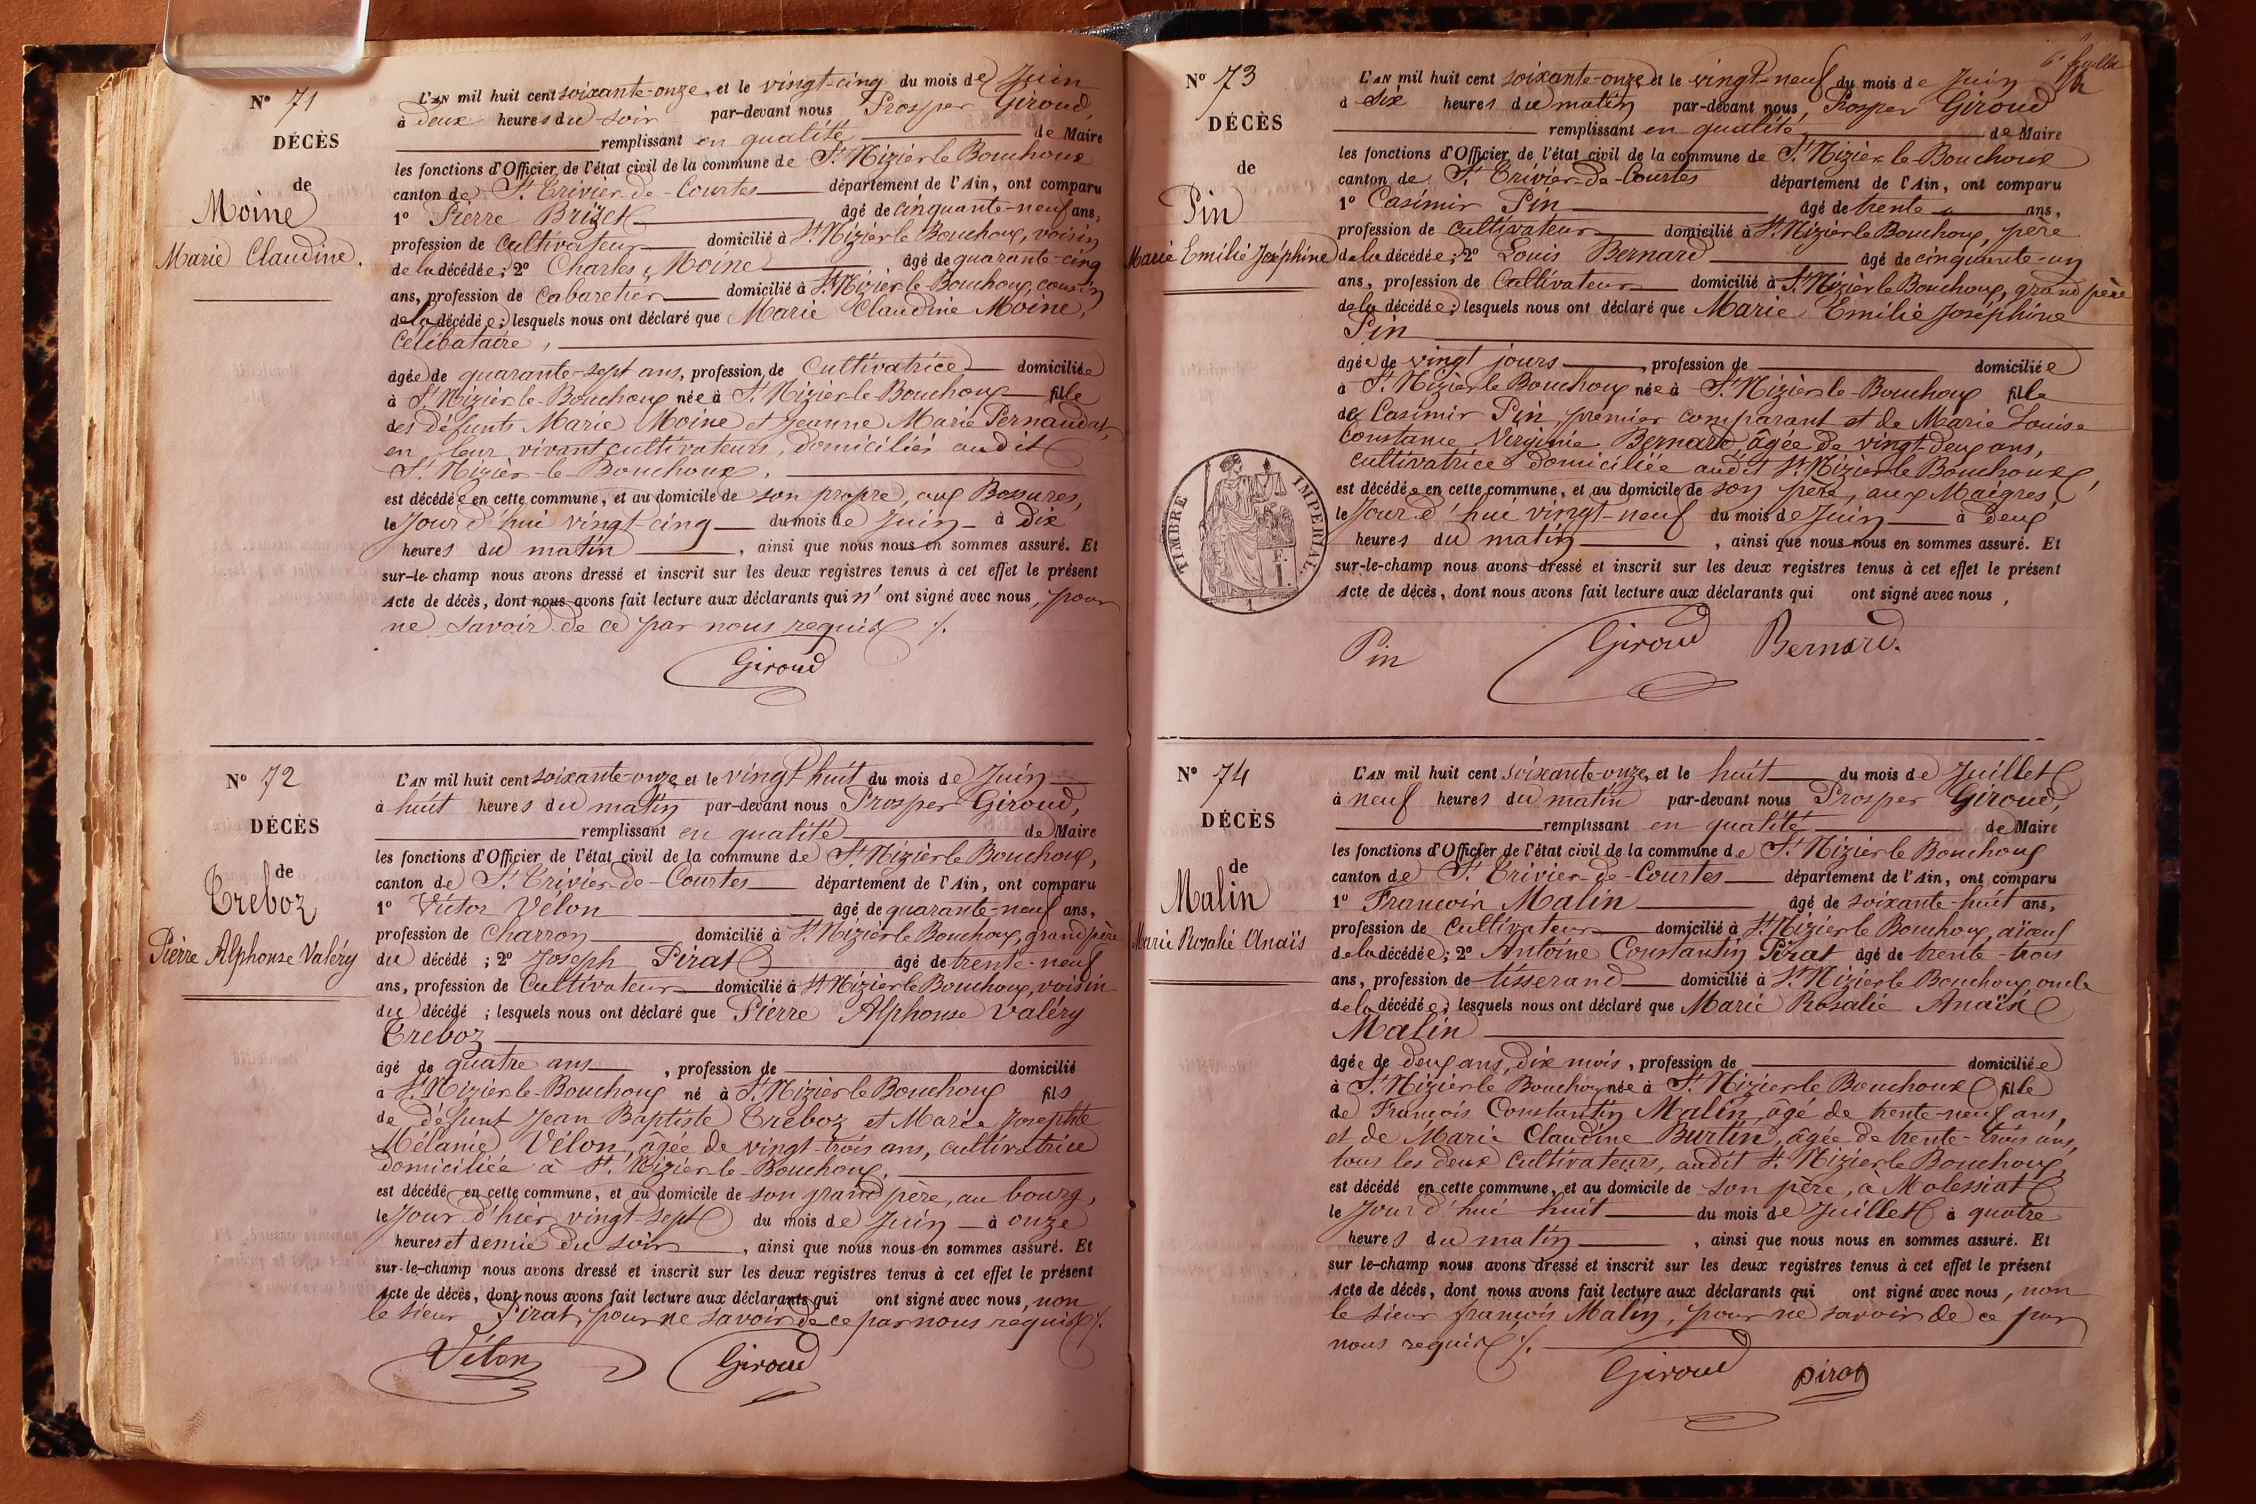 N° 71
DÉCÈS
de
Moine
Marie Claudine.
L'AN mil huit cent soixante-onze, et le vingt-cinq du mois de Juin
à deux heures du soir par-devant nous Prosper Giroud,
remplissant en qualité de Maire
les fonctions d'Officier de l'état civil de la commune de St Nizier le Bouchoux
canton de St Trivier-de-Courtes département de l'Ain, ont comparu
1° Pierre Brizet âgé de cinquante-neuf ans,
profession de Cultivateur domicilié à St Nizier le Bouchoux, voisin
de la décédée; 2° Charles Moine âgé de quarante-cinq
ans, profession de Cabaretier domicilié à St Nizier-le-Bouchoux, cousin
de la décédée; lesquels nous ont déclaré que Marie Claudine Moine,
Célibataire,
âgée de quarante-sept ans, profession de Cultivatrice domiciliée
à St Nizier-le-Bouchoux née à St Nizier-le-Bouchoux fille
des défunts Marie Moine et Jeanne Marie Pernaudat,
en leur vivant cultivateurs, domiciliés audit
St Nizier-le-Bouchoux.
est décédée en cette commune, et au domicile de son propre, aux Bossures,
le Jour d'hui vingt-cinq du mois de Juin à dix
heures du matin, ainsi que nous nous en sommes assuré. Et
sur-le-champ nous avons dressé et inscrit sur les deux registres tenus à cet effet le présent
Acte de décès, dont nous avons fait lecture aux déclarants qui n' ont signé avec nous, pour
ne savoir de ce par nous requis ./.
Giroud
N° 72
DÉCÈS
de
Treboz
Pierre Alphonse Valéry
L'AN mil huit cent soixante-onze, et le vingt huit du mois de Juin
à huit heures du matin par-devant nous Prosper Giroud,
remplissant en qualité de Maire
les fonctions d'Officier de l'état civil de la commune de St Nizier le Bouchoux,
canton de St Trivier-de-Courtes département de l'Ain, ont comparu
1° Victor Vélon âgé de quarante-neuf ans,
profession de Charron domicilié à St Nizier le Bouchoux, grand père
du décédé ; 2° Joseph Pirat âgé de trente-neuf
ans, profession de Cultivateur domicilié à St Nizier le Bouchoux, voisin
du décédé ; lesquels nous ont déclaré que Pierre Alphonse Valéry
Treboz
âgé de quatre ans, profession de domicilié
à St Nizier-le-Bouchoux né à St Nizier le Bouchoux fils
de défunt Jean Baptiste Treboz et Marie Josephte
Mélanie Vélon, âgée de vingt-trois ans, cultivatrice
domiciliée à St Nizier-le-Bouchoux.
est décédé en cette commune, et au domicile de son grand père, au bourg,
le Jour d'hier vingt-sept du mois de Juin à onze
heures et demie du soir, ainsi que nous nous en sommes assuré. Et
sur-le-champ nous avons dressé et inscrit sur les deux registres tenus à cet effet le présent
Acte de décès, dont nous avons fait lecture aux déclarants qui ont signé avec nous, non
le sieur Pirat, pour ne savoir de ce par nous requis ./.
Vélon Giroud
6e feuillet
N° 73
DÉCÈS
de
Pin
Marie Emilie Joséphine
L'AN mil huit cent soixante-onze, et le vingt-neuf du mois de Juin
à six heures du matin par-devant nous, Prosper Giroud
remplissant en qualité de Maire
les fonctions d'Officier de l'état civil de la commune de St Nizier le-Bouchoux
canton de St Trivier-de-Courtes département de l'Ain, ont comparu
1° Casimir Pin âgé de trente ans,
profession de Cultivateur domicilié à St Nizier le Bouchoux, père
de la décédée; 2° Louis Bernard âgé de cinquante-un
ans, profession de Cultivateur domicilié à St Nizier le Bouchoux, grand père
de la décédée; lesquels nous ont déclaré que Marie Emilie Joséphine
Pin
âgée de vingt jours, profession de domiciliée
à St Nizier le Bouchoux née à St Nizier-le-Bouchoux fille
de Casimir Pin premier comparant et de Marie Louise
Constance Virginie Bernard, âgée de vingt-deux ans,
cultivatrice domiciliée audit St Nizier-le Bouchoux,
est décédée en cette commune, et au domicile de son père, aux Maigres,
le Jour d'hui vingt-neuf du mois de Juin à deux
heures du matin, ainsi que nous nous en sommes assuré. Et
sur-le-champ nous avons dressé et inscrit sur les deux registres tenus à cet effet le présent
Acte de décès, dont nous avons fait lecture aux déclarants qui ont signé avec nous,
Pin Giroud Bernard.
TIMBRE IMPÉRIAL
1 F.
1
N° 74
DÉCÈS
de
Malin
Marie Rosalie Anaïs
L'AN mil huit cent soixante onze, et le huit du mois de Juillet
à neuf heures du matin par-devant nous Prosper Giroud,
remplissant en qualité de Maire
les fonctions d'Officier de l'état civil de la commune de St Nizier le Bouchoux
canton de St Trivier-de-Courtes département de l'Ain, ont comparu
1° François Malin âgé de soixante-huit ans,
profession de Cultivateur domicilié à St Nizier le Bouchoux, aïeul
de la décédée; 2° Antoine Constantin Pirat âgé de trente-trois
ans, profession de tisserand domicilié à St Nizier le Bouchoux, oncle
de la décédée; lesquels nous ont déclaré que Marie Rosalie Anaïs
Malin
âgée de deux ans, dix mois, profession de domiciliée
à St Nizier le Bouchoux née à St Nizier le Bouchoux fille
de François Constantin Malin, âgé de trente-neuf ans,
et de Marie Claudine Burtin, âgée de trente-trois ans,
tous les deux cultivateurs, audit St Nizier le Bouchoux,
est décédé en cette commune, et au domicile de son père, à Molessiat
le Jour d'hui huit du mois de Juillet à quatre
heures du matin, ainsi que nous nous en sommes assuré. Et
sur le-champ nous avons dressé et inscrit sur les deux registres tenus à cet effet le présent
Acte de décès, dont nous avons fait lecture aux déclarants qui ont signé avec nous, non
le sieur françois Malin, pour ne savoir de ce par
nous requis ./.
Giroud pirat